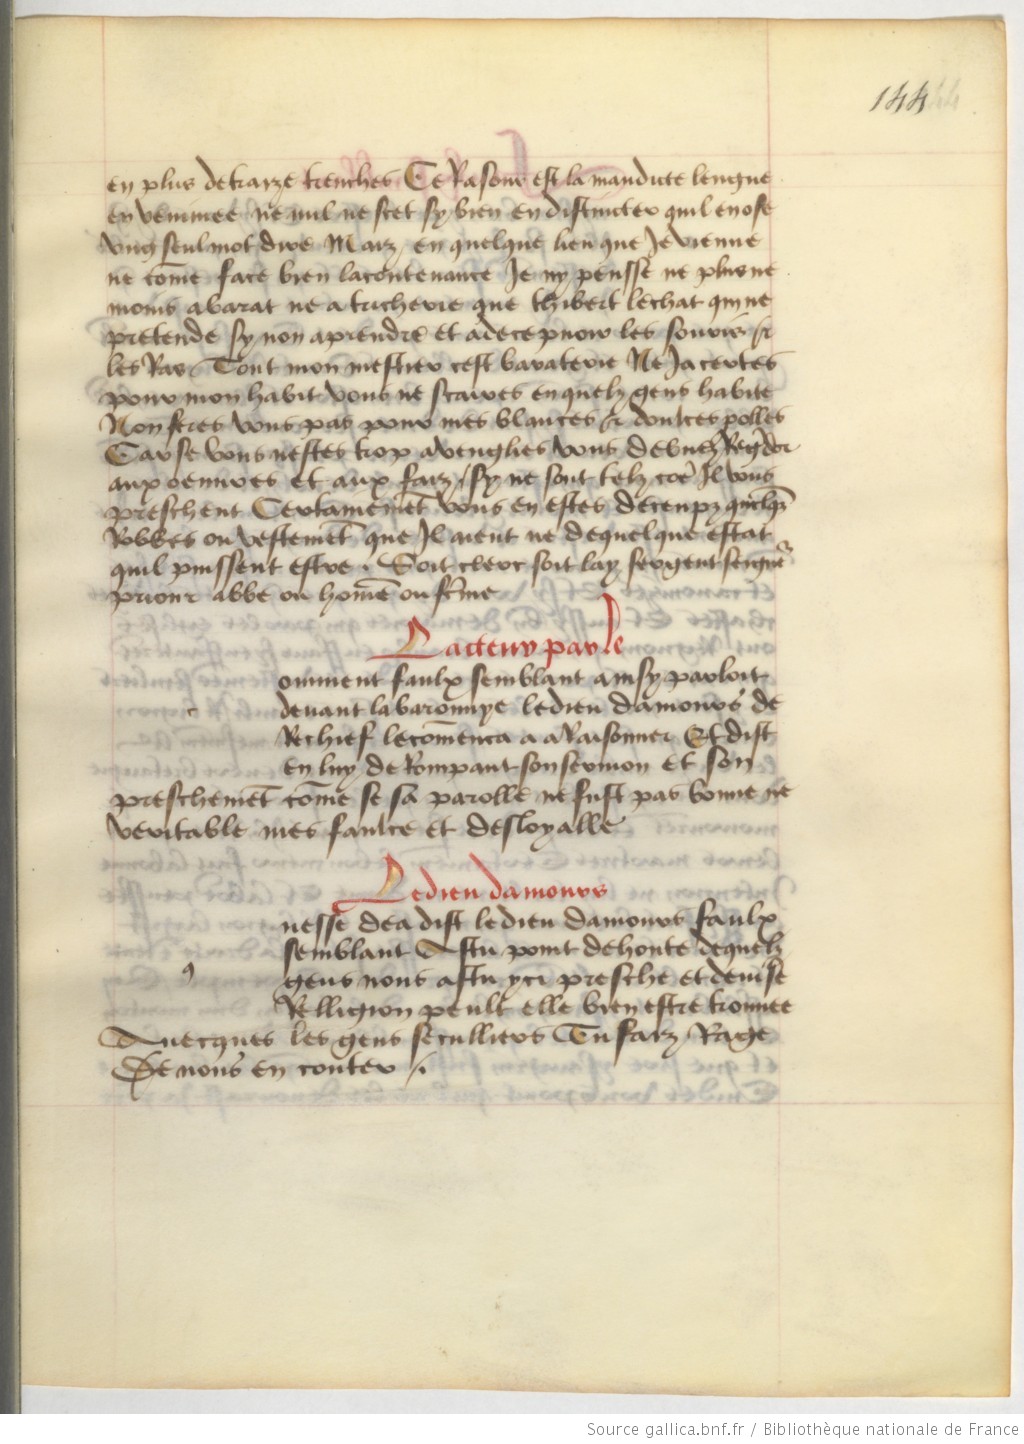 144
en plus de trarze trenches Ce Rasour est la maudicte lengue
envenimee ne nul ne scet sy bien en distincter quil en ose
ung seul mot dire Marz en quelque lieu que Je vienne
ne cõme face bien la contenance Je ny pensse ne plus ne
moins a barat ne a tricherie que thibert le chat qui ne
pretende sy non aprendre et a decepuoir les souris et
les Ras Tout mon mestier cest baraterie Ne Ja certes
pour mon habit vous ne scaires en quelz gens habite
Non feres vous pas pour mes blances et doulces polles
Car se vous nestes trop avenghes vous devuez Regder
aux oeuvres et aux farz sy ne sont telz cõe Il vous
preschent Certainemẽt vous en estes deceupz quelqz
Robbes ou vestemẽt que Il aient ne de quelque estat
quil puissent estre . Soit clerc soit lay sergent seignẽr
priour abbe ou homẽ ou fẽme
Lacteur parle
omment faulx semblant ainsy parloit
c devant la baronnye le dieu damours de
Rechief le cõmenca a aRaisonner Et dist
en luy de Rompant son sermon et son
preschemẽt cõme se sa parolle ne fust pas bonne ne
veritable mes faulce et desloyalle
Le dieu damours
uesse dea dist le dieu damours faulx
semblant As tu point de honte de quelz
q gens nous as tu yci presche et devise
Relligion peult elle bien estre trouvee
Auecques les gens seculliers Tu farz Rage
De nous en conter .
Source gallica.bnf.fr / Bibliothèque nationale de France